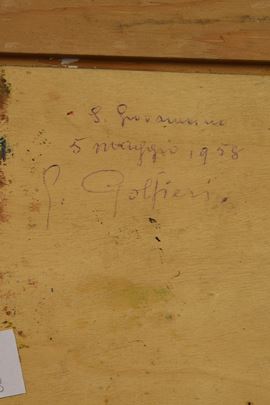 S. Giovannino
5 maggio 1958
G. Golfieri.